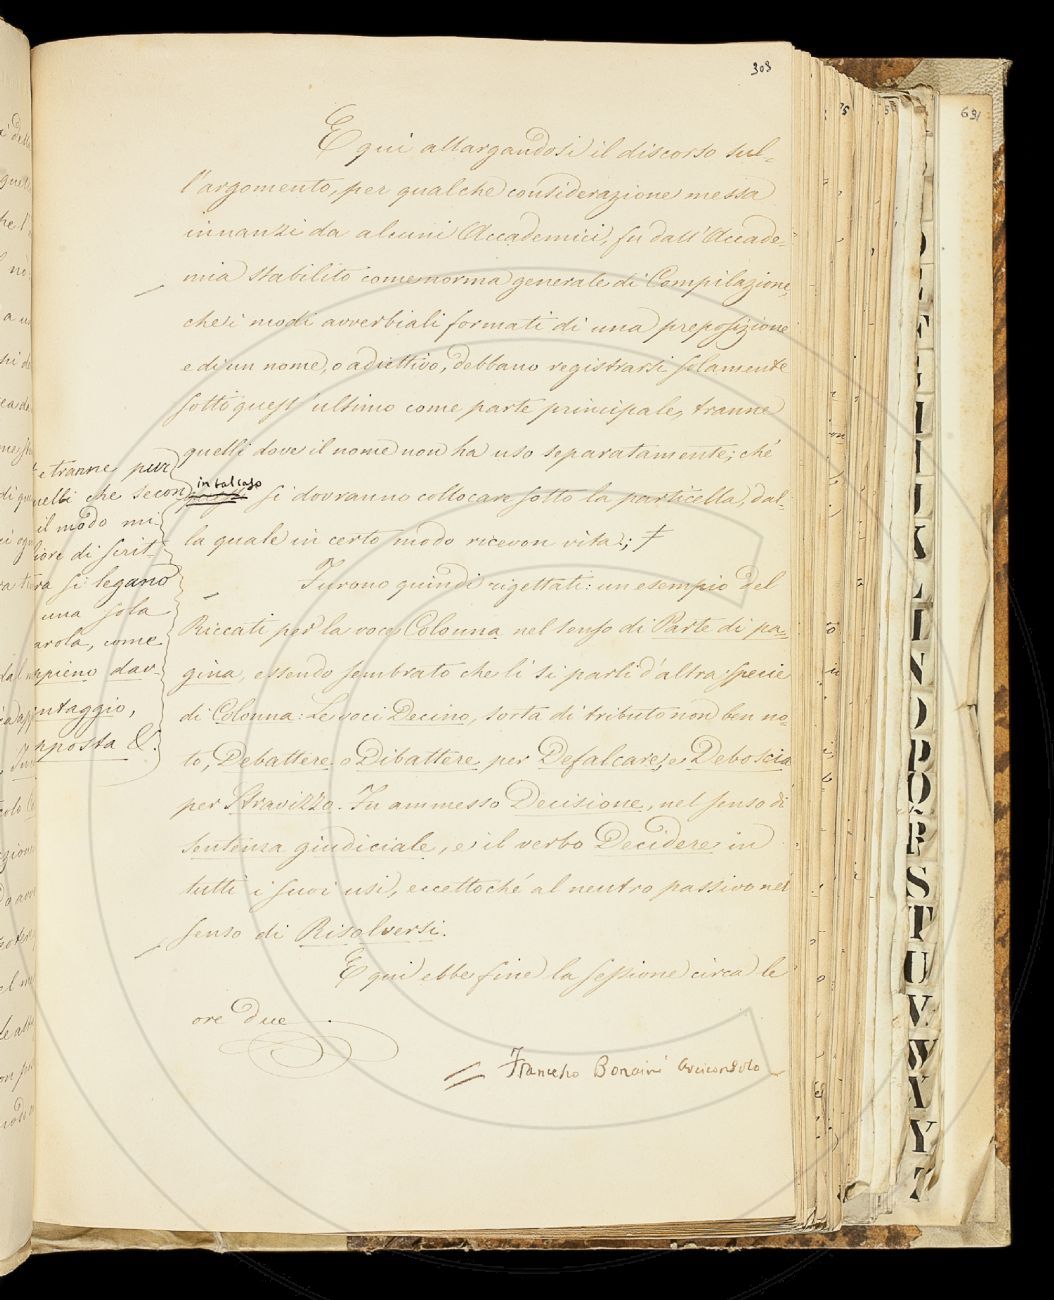 303
E qui allargandosi il discorso sul-
l'argomento, per qualche considerazione messa
innanzi da alcuni Accademici, fu dall'Accade-
mia stabilito come norma generale di Compilazione,
che i modi avverbiali formati di una preposizione
e di un nome, o adiettivo, debbano registrarsi solamente
sotto quest'ultimo come parte principale, tranne
quelli dove il nome non ha uso separatamente; ché
in tal caso
si dovranno collocare sotto la particella, dal-
la quale in certo modo ricevon vita; ‡
e tranne pur
quelli che secon
il modo mi-
liore di scrit-
ra si legano
una sola
arola, come
ppieno dav-
ntaggio,
pposta &.
Furono quindi rigettati: un esempio del
Riccati per la voce Colonna nel senso di Parte di pa-
gina, essendo sembrato che lì si parli d'altra specie
di Colonna: Le voci Decino, sorta di tributo non ben no-
to, Debattere o Dibattere per Defalcare; e Deboscia
per Stravizzo. Fu ammesso Decisione, nel senso di
sentenza giudiciale, e il verbo Decidere in
tutti i suoi usi, eccettoché al neutro passivo nel
senso di Risolversi.
E qui ebbe fine la sessione circa le
ore due.
Francesco Bonaini Arciconsolo
691
K
L
N
O
P
Q
R
S
T
U
V
W
X
Y
Z